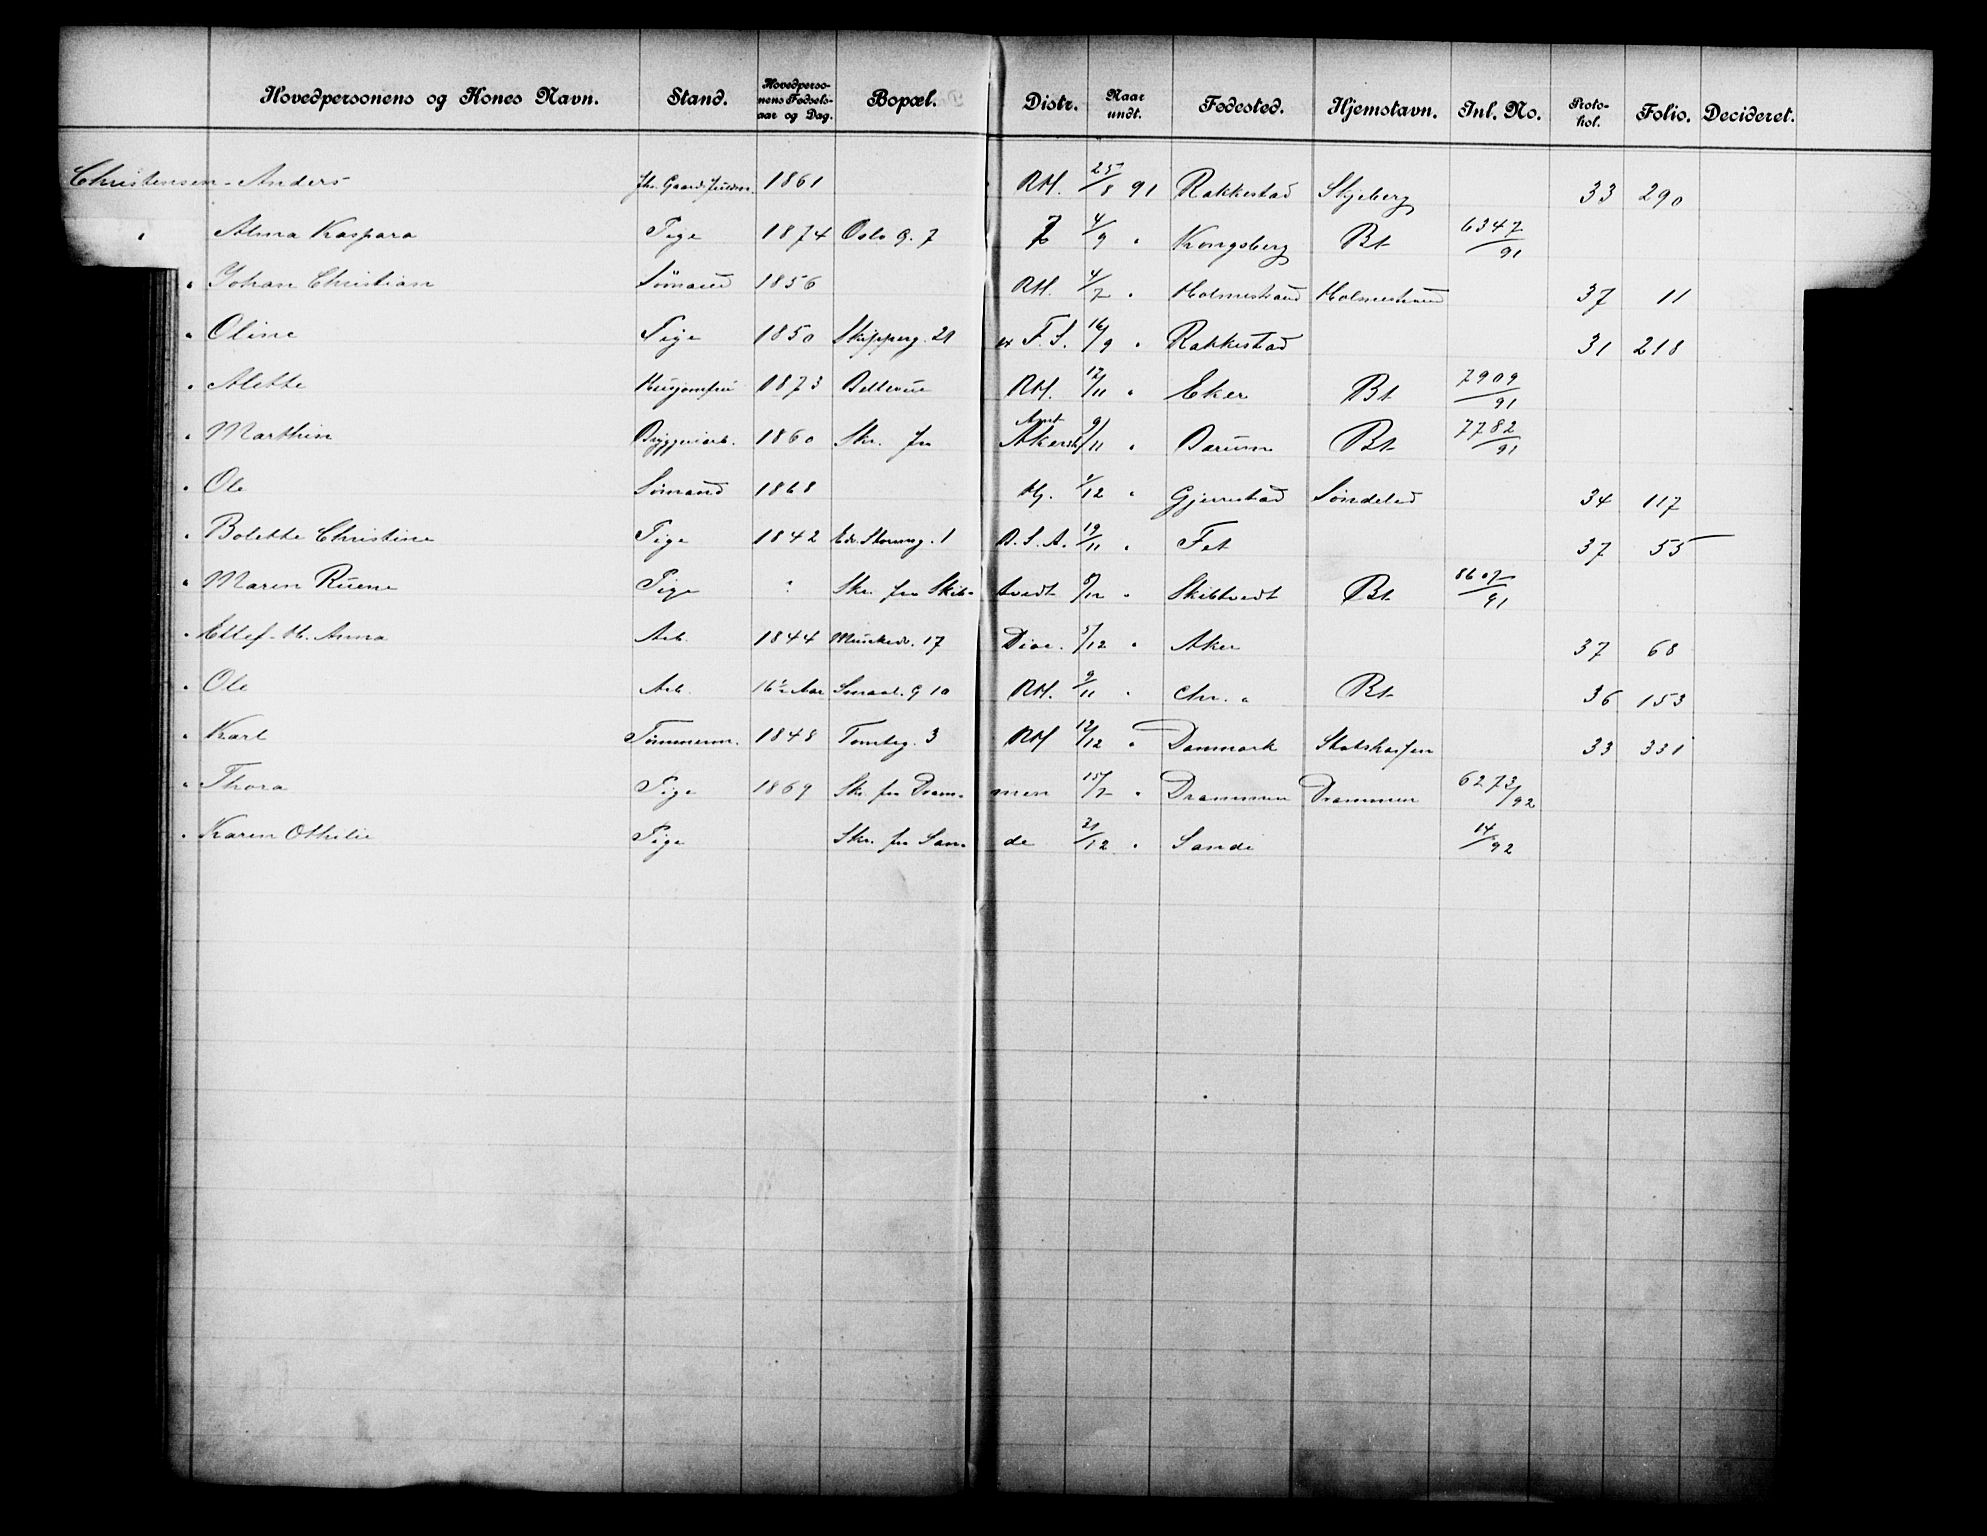 Hovedpersonens og Kones Navn. Stand. Hovedpersonens Fødselsaar og Dag. Bopæl. Distr. Naar undt. Fødested. Hjemstavn. Inl. No. Protokol. Folio. Decideret.
Christensen - Anders 1861 RH. 25/8 91 Rakkestad Skjeberg 33 290
" Alma Kaspara Pige 1874 Oslo g. 7 4/9 " Kongsberg Bt 6347/91
" Johan Christian Sømand 1856 RH. 4/7 " Holmestrand Holmestrand 37 11
" Oline Pige 1850 Skipperg. 21 F. S. 16/9 " Rakkestad 31 218
" Alette Husjomfru 1873 Bellevue RH. 12/11 " Eker Bt 7909/91
" Marthin Bryggeriarb. 1860 Skr. fra Amt Akersh. 9/11 " Bærum Bt 7782/91
" Ole Sømand 1868 Hj. 1/12 " Gjerrestad Søndeled 34 117
" Bolette Christine Pige 1842 Edv. Stormsg. 1 D. S. A. 19/11 " Fet 37 55
" Maren Ruene Pige " Skr. fra Skibtvedt 8/12 " Skibtvedt Bt 8607/91
" Ellef - H. Anna Arb. 1844 Munkedv. 17 Diac. 5/12 " Aker 37 68
" Ole Arb. 16 1/2 Aar Smaal. g 10 RH. 9/11 " Chr. a Bt 36 153
" Karl Tømmerm. 1848 Tomteg. 3 RH 12/12 " Danmark Statskassen 33 331
" Thora Pige 1869 Skr. fra Drammen 15/7 " Drammen Drammen 6273/92
" Karen Othilie Pige Skr. fra Sande 21/12 " Sande 14/92